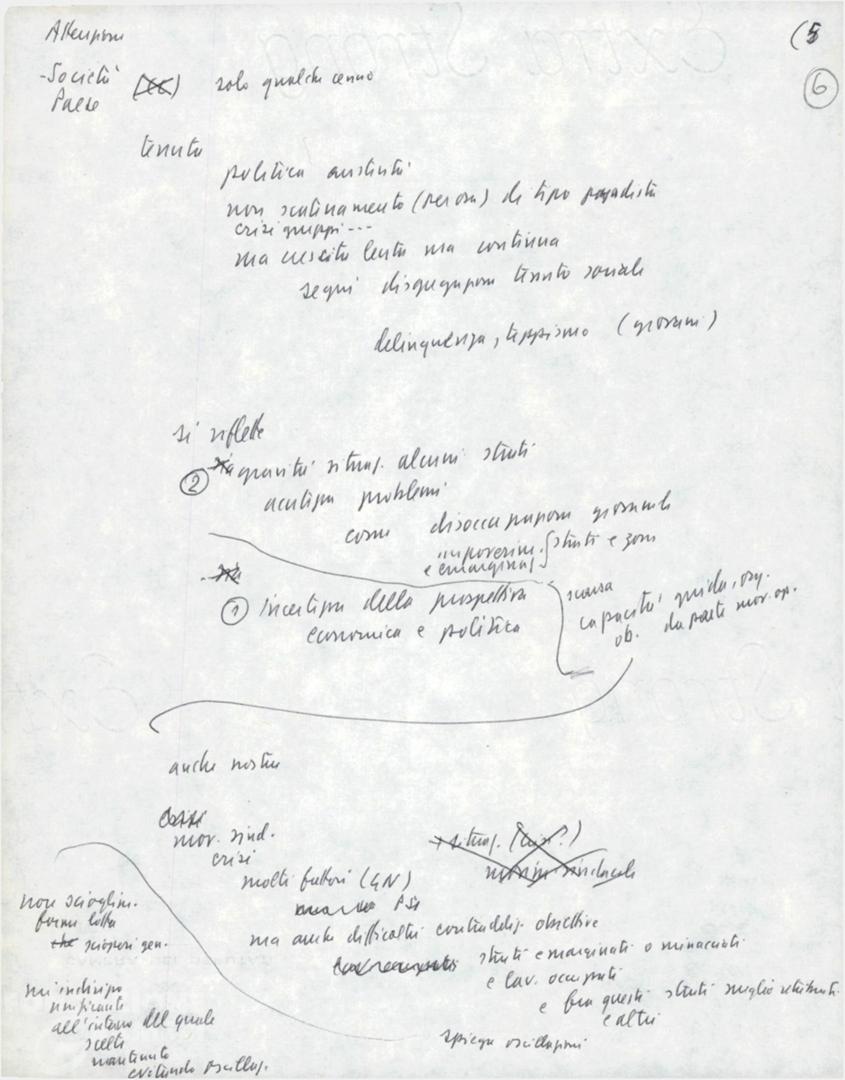 Attenzione
(5
6
- Società (CC) solo qualche cenno
Paese
tenuta
politica austerità
non scatenamento (per ora) di tipo
crisi gruppi ---
ma crescita lenta ma continua
segni disgregazione tenuta sociale
delinquenza, teppismo (giovani)
si riflette
② gravità situaz. alcuni strati
acutizza problemi
come disoccupazione giovanile
impoverim. strati e zone
e emarginaz.
① incertezza della prospettiva
economica e politica
scarsa
capacità guida, org.
ob. da parte mov. op.
anche nostra
mov. sind.
crisi
+ situaz. (crisi?)
sindacale
molti fattori (GN)
ma anche difficoltà contraddiz. obiettive
strati emarginati o minacciati
e lav. occupati
e fra questi strati meglio retribuiti
e altri
spiega oscillazioni
non scioglim.
forme lotta
che scioperi gen.
un indirizzo
unificante
all'interno del quale
scelte
mantenuto
evitando oscillaz.